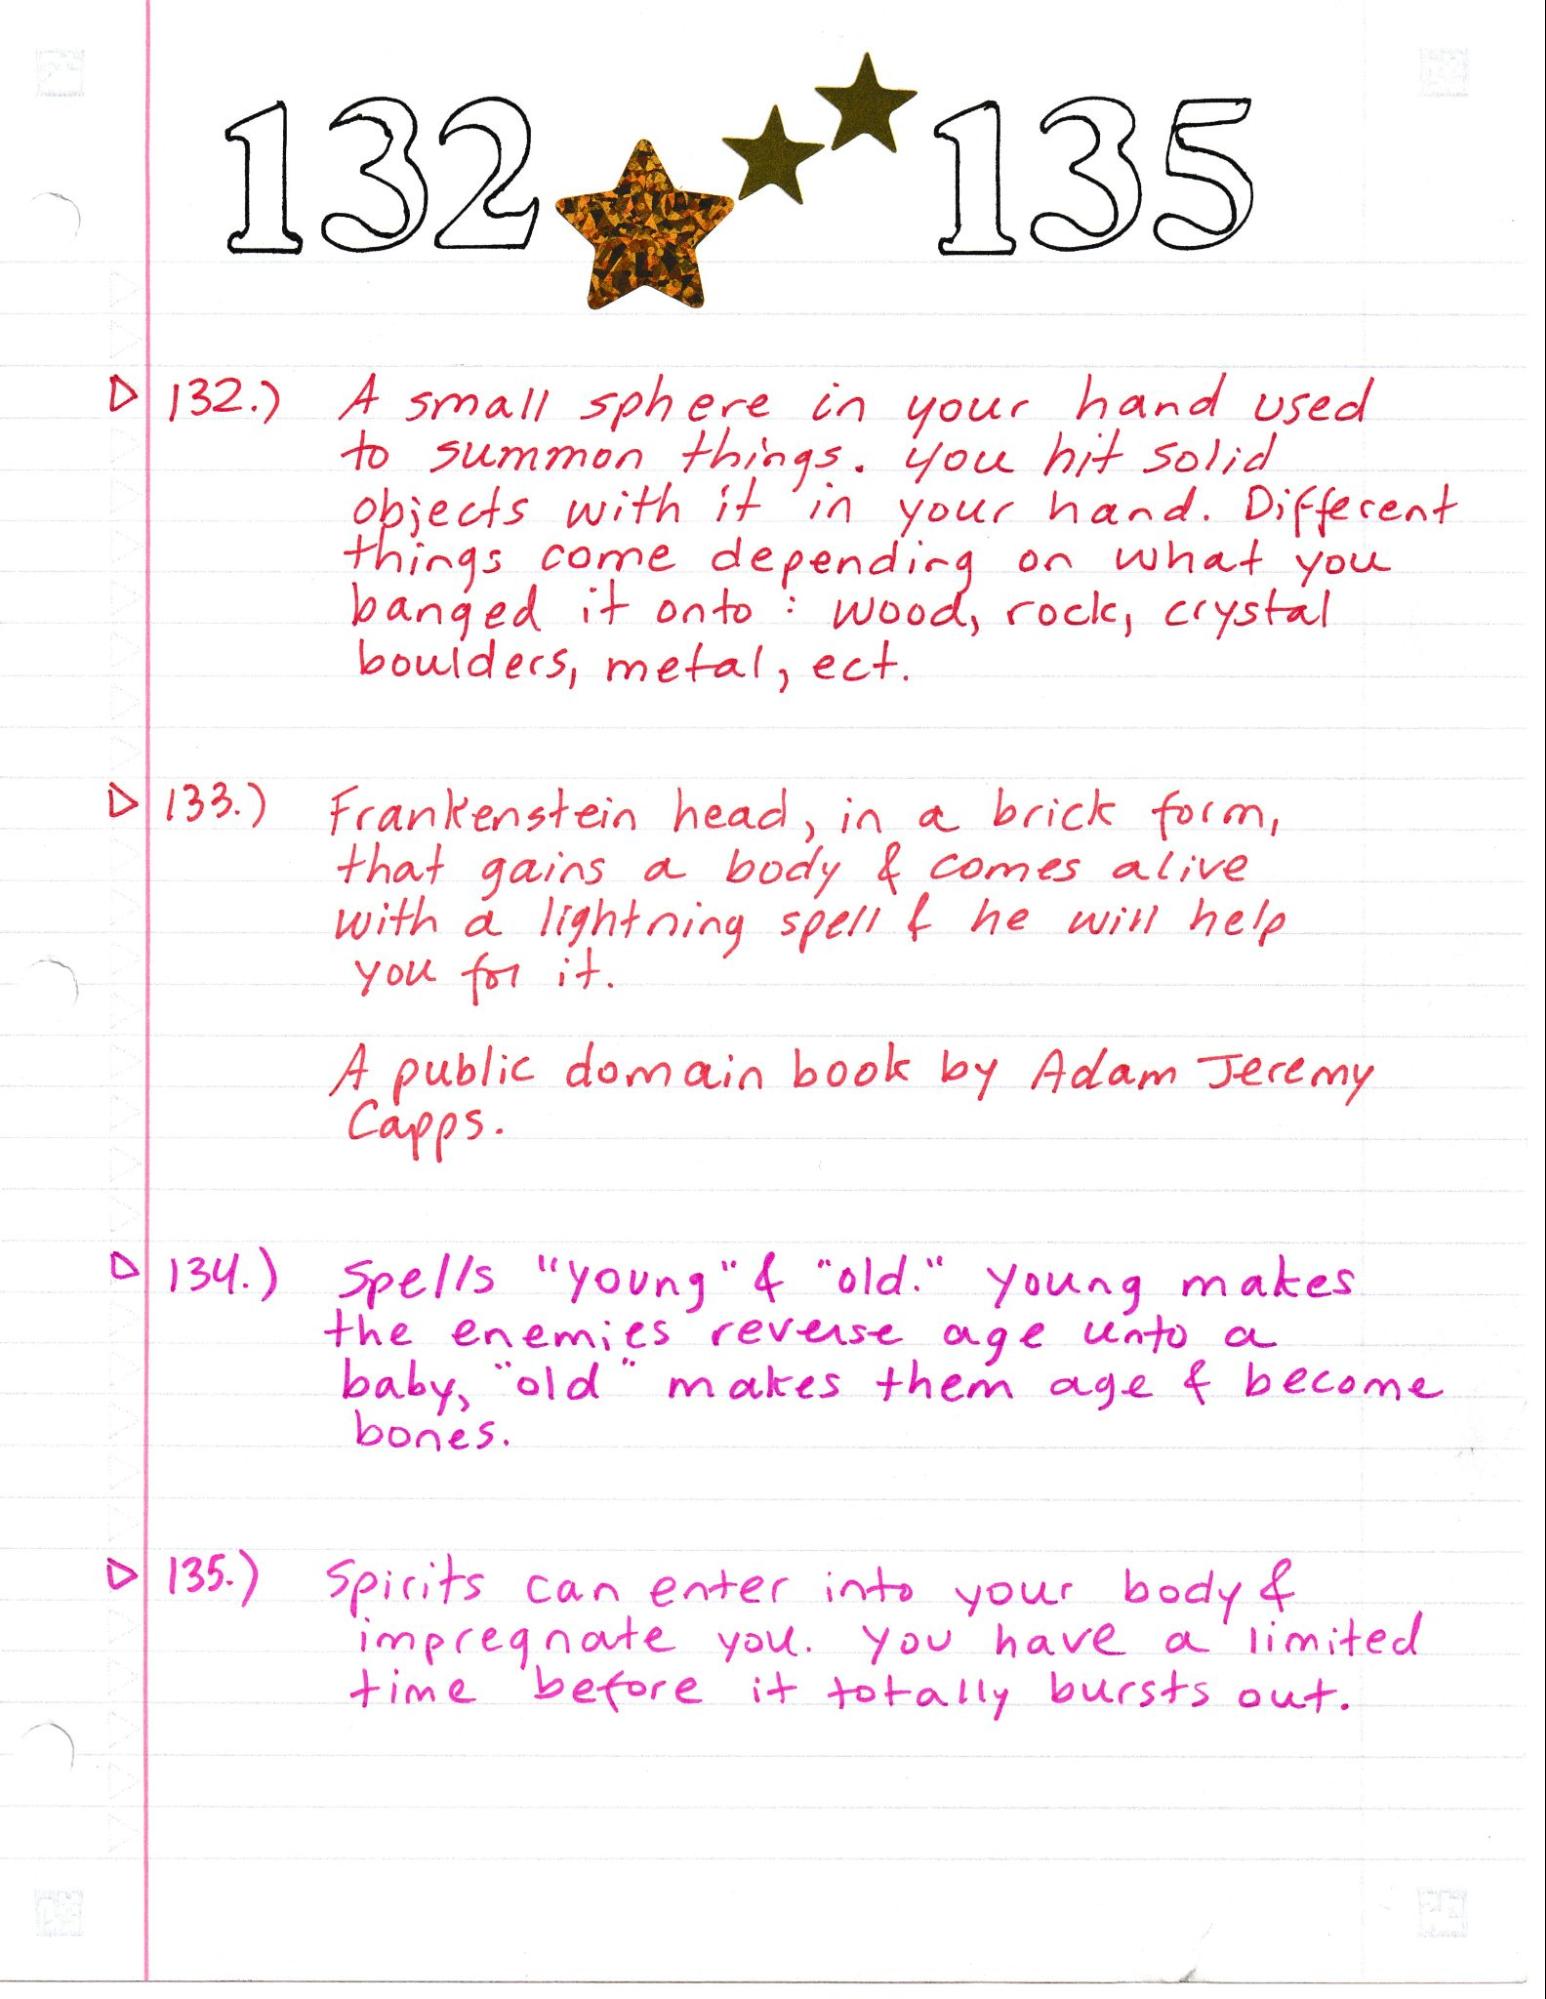 132 135
132.) A small sphere in your hand used
to summon things. you hit solid
objects with it in your hand. Different
things come depending on what you
banged it onto : wood, rock, crystal
boulders, metal, ect.
133.) Frankenstein head, in a brick form,
that gains a body & comes alive
with a lightning spell & he will help
you for it.
A public domain book by Adam Jeremy
Capps.
134.) Spells "young" & "old." Young makes
the enemies reverse age unto a
baby, "old" makes them age & become
bones.
135.) Spirits can enter into your body &
impregnate you. You have a limited
time before it totally bursts out.